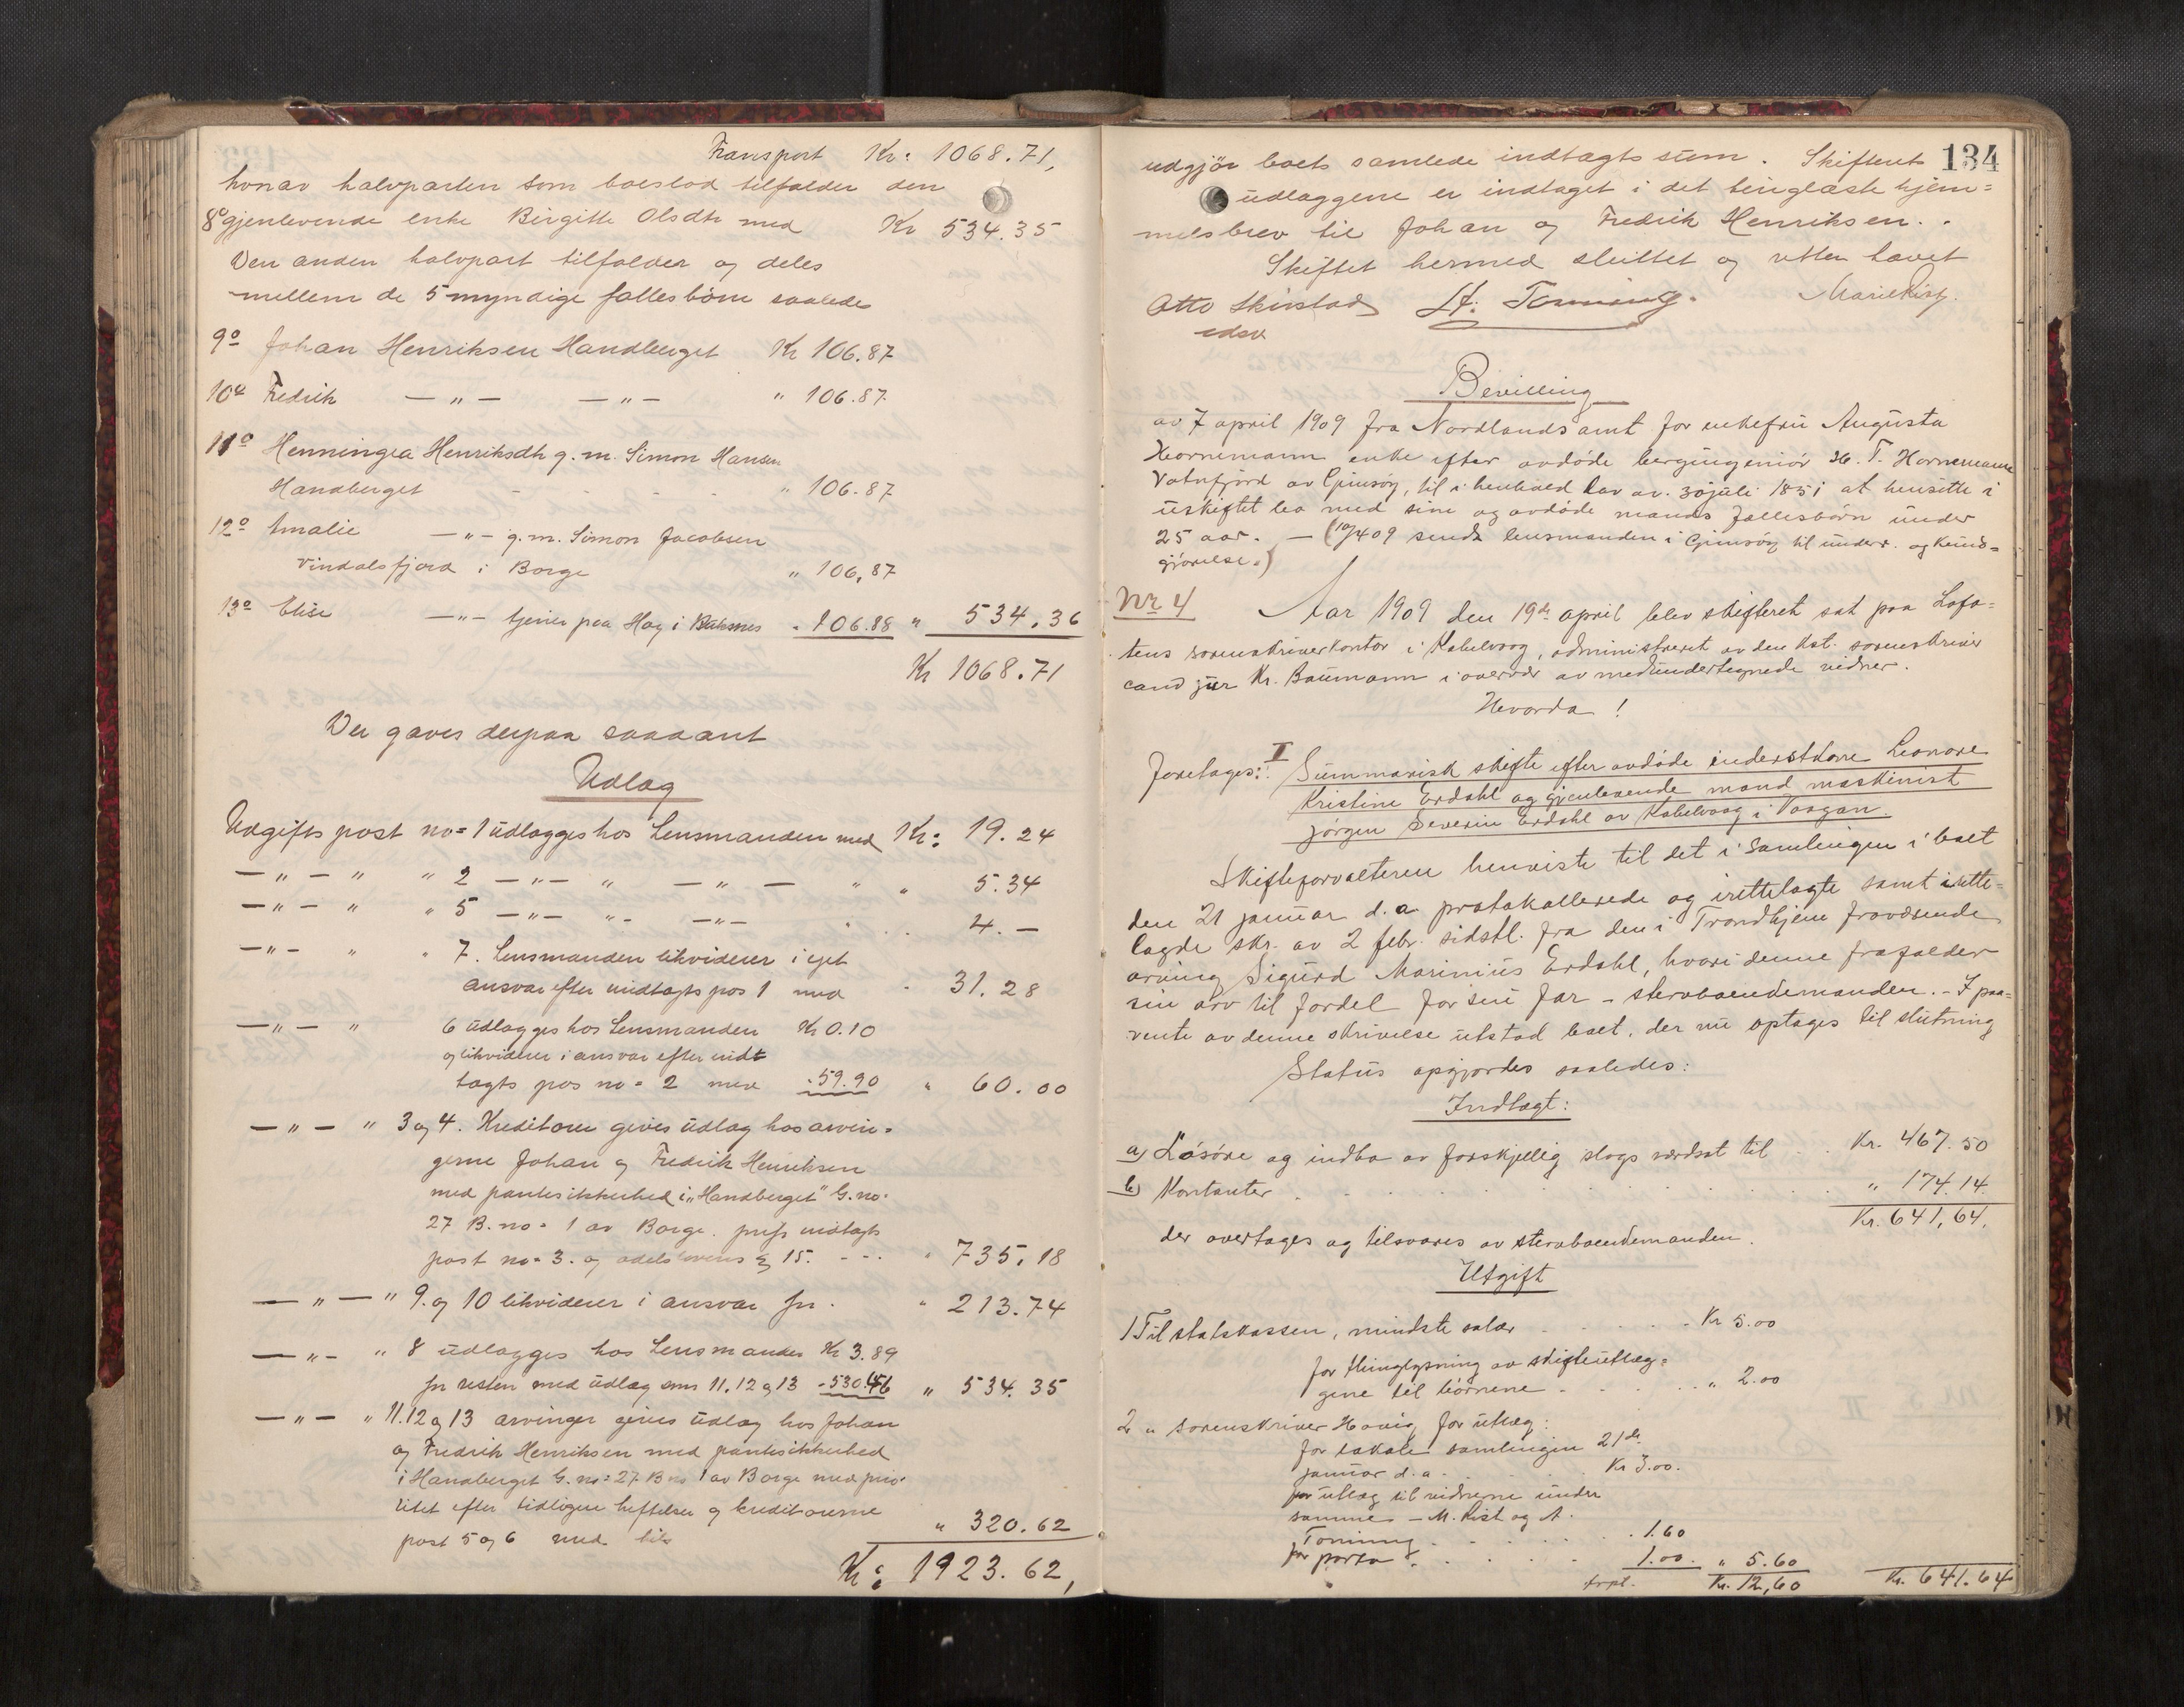 Transport Kr: 1068.71,
hvorav halvparten som boeslod tilfalder den
8° gjenlevende enke Birgitte Olsdtr med Kr 534.35
Den anden halvpart tilfalder og deles
mellem de 5 myndige fællesbörn saaledes
9° Johan Henriksen Handberget Kr 106.87
10° Fredrik —"— —"— " 106.87
11° Henningea Henriksdtr g. m. Simon Hansen
Handberget - - - - " 106.87
12° Amalie —"— g. m. Simon Jacobsen
Vindalsfjord i Borge " 106,87
13° Elise —"— tjener paa Hag i Buksnes " 106.88 " 534.36
Kr 1068.71
Der gaves derpaa saadant
Udlæg
Udgifts post no= 1 udlægges hos Lensmanden med Kr: 19.24
—"— " " 2 —"— " —"— " " 5.34
—"— " " 5 —"— "- —"— 4.—
—"— " " 7. Lensmanden likviderer i eget
ansvar efter indtægts pos 1 med " 31.28
—"— " 6 udlægges hos Lensmanden Kr 0.10
og likviderer i ansvar efter indt
tægts pos no= 2 med "59.90 " 60.00
—"— " 3 og 4. Kreditorer gives udlæg hos arvin=
gerne Johan og Fredrik Henriksen
med pantesikkerhed i "Handberget" G.no.
27 B.no= 1 av Borge. indtægts
post no= 3. og odelslovens § 15. - - - " 735.18
—"— " 9. og 10 likviderer i ansvar for . " 213.74
—"— " 8 udlægges hos Lensmanden Kr 3.89
for resten med udlæg som 11. 12 og 13 "530.46 " 534.35
—"— " 11. 12 og 13 arvinger gives udlæg hos Johan
og Fredrik Henriksen med pantesikkerhed
i Handberget G.no= 27 B no 1 av Borge med prio-
ritet efter tidligere heftelser og kreditorerne
post 5 og 6 med " 320.62
Kr: 1923.62,
134
udgjör boets samlede indtægts sum. Skifterets
udlæggene er indtaget i det tinglæste hjem=
melsbrev til Johan og Fredrik Henriksen.
Skiftet hermed sluttet og retten hævet
Otto Skirstad A. Tonning. Marie Rist.
edsv
Bevilling
av 7 april 1909 fra Nordlands amt for enkefru Augusta
Hornemann enke efter avdöde bergingeniör H. T. Hornemann
Vatnfjord av Gimsöy, til i henhold lov av. 30 juli 1851 at hensitte i
uskiftet bo med sine og avdöde mands fællesbörn under
25 aar. — (10/4 09 sendt lensmanden i Gimsöy til underr. og kund=
gjörelse.)
Nr 4 Aar 1909 den 19de april blev skifteret sat paa Lofo=
tens sorenskriverkontor i Kabelvaag, administreret av den kst. sorenskriver
cand jur Kr. Baumann i overvær av medundertegnede vidner.
Hvorda!
Foretages: I Summarisk skifte efter avdöde inderstkone Leonore
Kristine Erdahl og gjenlevende mand maskinist
Jörgen Severin Erdahl av Kabelvaag i Vaagan.
Skifteforvalteren henviste til det i samlingen i boet
den 21 januar d. a protokollerede og irettelagte samt irette=
lagde skr. av 2 febr. sidstl. fra den i Trondhjem fraværende
arving Sigurd Marinius Erdahl, hvori denne frafalder
sin arv til fordel for sin far – stervboendemanden. – I paa=
vente av denne skrivelse utstod boet, der nu optages til slutning
Status opgjordes saaledes:
Indtægt:
a) Lösöre og indbo av forskjellig slags værdsat til . . Kr. 467.50
b) Kontanter . . . . . . " 174.14
Kr. 641,64.
der overtages og tilsvares av stervboendemanden.
Utgift
1 Til statskassen, mindste salær . . . . . Kr 5.00
for thinglysning av skifteutlæg=
gene til börnene . . . . " 2.00
2 " sorenskriver Havig for utlæg:
for lokale samlingen 21de
januar d. a. . . . . Kr 3.00.
for utlæg til vidnerne under
samme – M. Rist og A.
Tonning . . . . . 1.60
for porto . . . . . 1.00. " 5.60
trpt. Kr. 12,60 Kr. 641.64